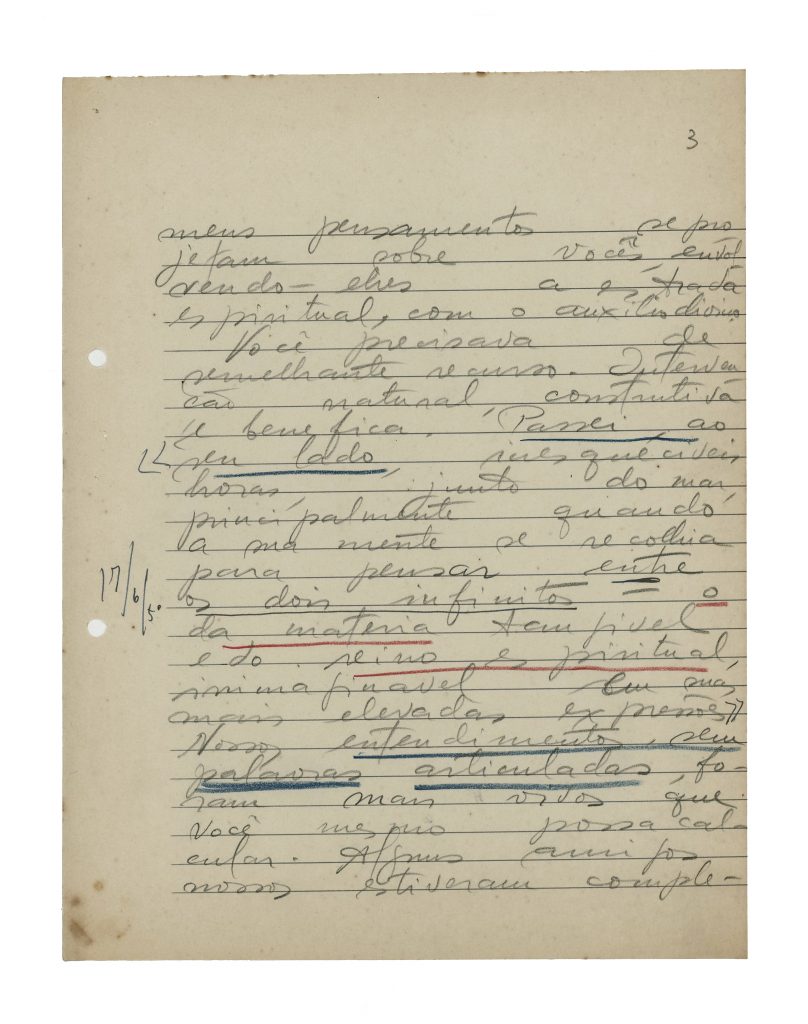 3
meus pensamentos se pro
jetam sobre vocês, envol
vendo-elhes a estrada
espiritual, com o auxilio divino
Você precisava de
semelhante recurso. Interven
cão natural, construtiva
é benefica. Passei, ao
"seu lado, inesqueciveis
horas, junto do mar,
principalmente quando
a sua mente se recolhia
para pensar entre
os dois infinitos = o
da materia tangivel
e do reino espiritual,
inimaginavel em suas
mais elevadas expressões"
17/6/50
Nossos entendimentos, sem
palavras articuladas, fo-
ram mais vivos que
você mesmo possa cal-
cular. Alguns amigos
nossos estiveram comple-